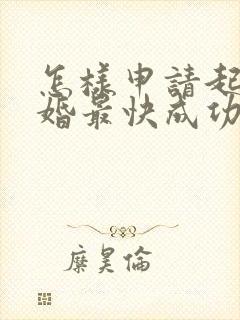 怎樣申請起
婚最快成功
糜昊倫